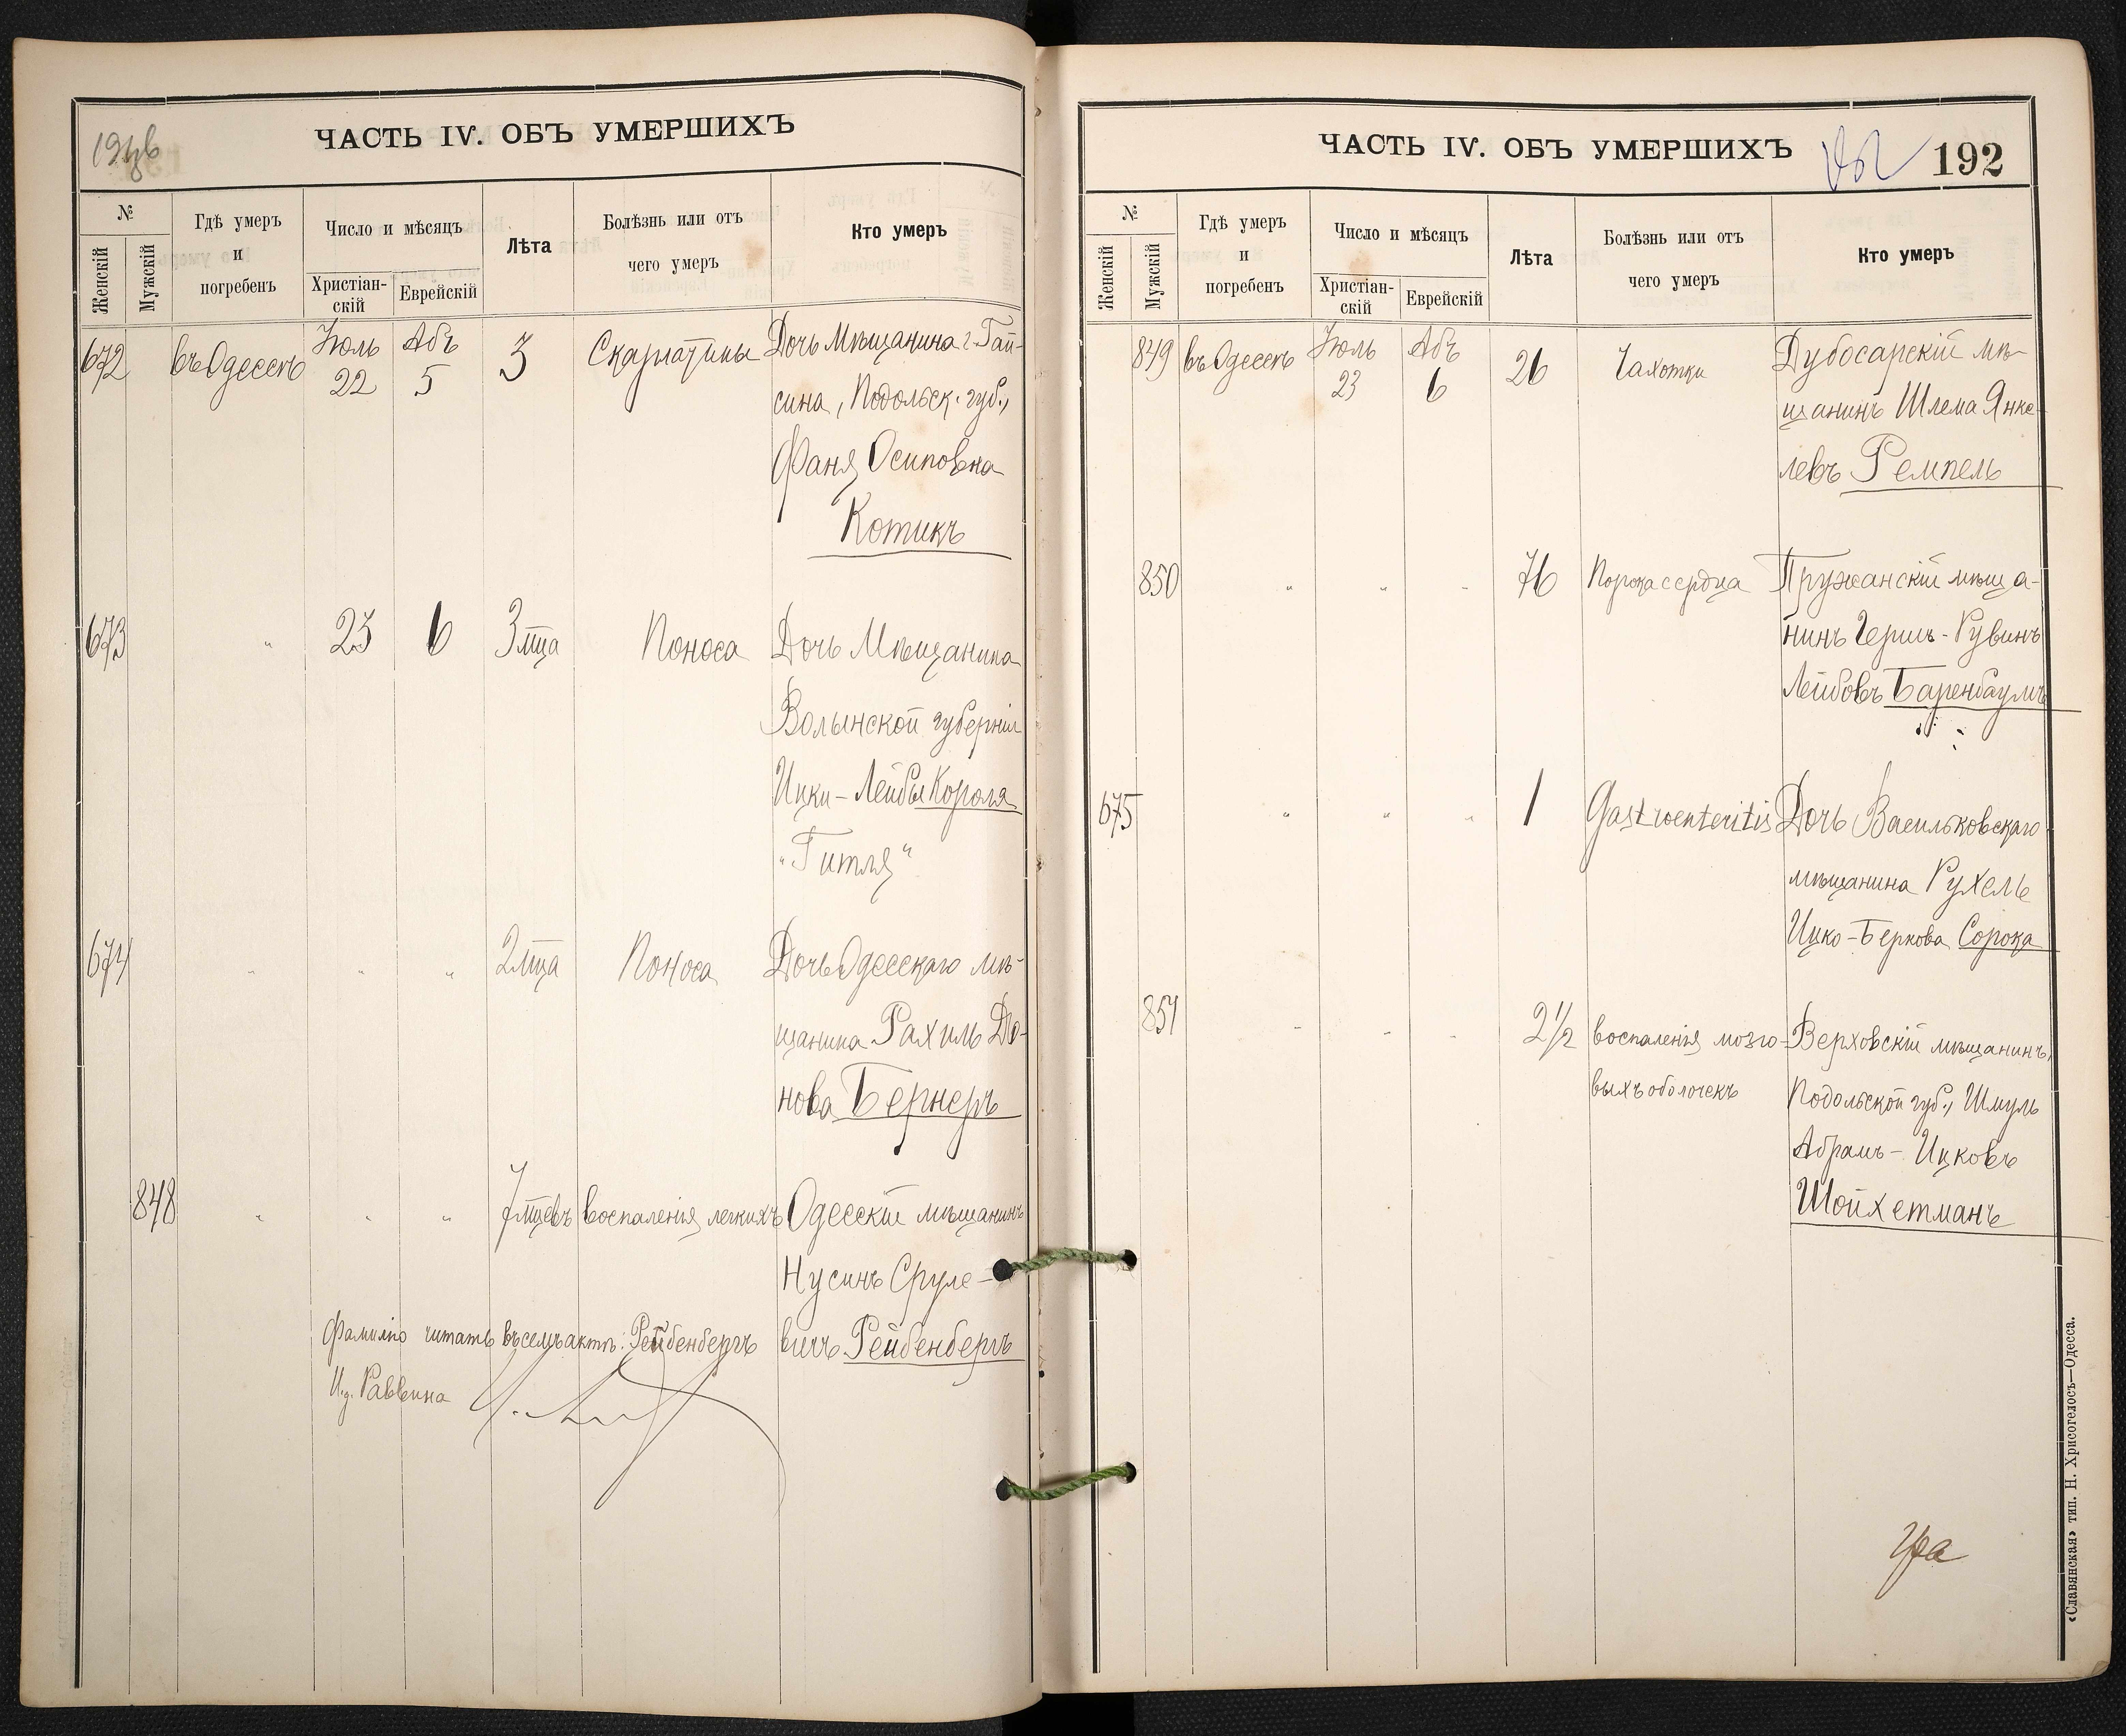 ЧАСТЬ IV. ОБЪ УМЕРШИХЪ
№
Женскій
Мужскій
Гдѣ умеръ
и
погребенъ
Число и мѣсяцъ
Христіан-
скій
Еврейскій
Лѣта
Болѣзнь или отъ
чего умеръ
Кто умеръ
672 въ Одессѣ Іюль Абъ 3 Скарлатины Дочь Мѣщанина г. Гай-
22 5 сина, Подольск. губ.,
Фаня Осиповна
Котикъ
673 " 23 6 3 мца Поноса Дочь Мѣщанина
Волынской губерніи
Ицки-Лейбы Короля
"Гитля"
674 " " " 2 мца Поноса Дочь Одесскаго мѣ-
щанина Рахиль До-
нова Бернеръ
848 " " " 7 мцевъ воспаленія легкихъ Одесскій мѣщанинъ
Нусинъ Сруле-
вичъ Рейбенбергъ
Фамилію читать въ семъ актѣ: Рейбенбергъ
И.д. Раввина
ЧАСТЬ IV. ОБЪ УМЕРШИХЪ
192
№
Женскій
Мужскій
Гдѣ умеръ
и
погребенъ
Число и мѣсяцъ
Христіан-
скій
Еврейскій
Лѣта
Болѣзнь или отъ
чего умеръ
Кто умеръ
849 въ Одессѣ Іюль Абъ 26 Чахотки Дубосарскій мѣ-
23 6 щанинъ Шлема Янке-
левъ Ремпель
850 " " " 76 Порока сердца Пружанскій мѣща-
нинъ Гершъ-Рувинъ
Лейбовъ Баренбаумъ
675 " " " 1 Gastroenteritis Дочь Васильковскаго
мѣщанина Рухель
Ицко-Беркова Сорока
851 " " " 2 1/2 воспаленія мозго- Верховскій мѣщанинъ,
выхъ оболочекъ Подольской губ., Шмуль
Абрамъ-Ицковъ
Шойхетманъ
«Славянская» тип. Н. Хрисогелосъ—Одесса.